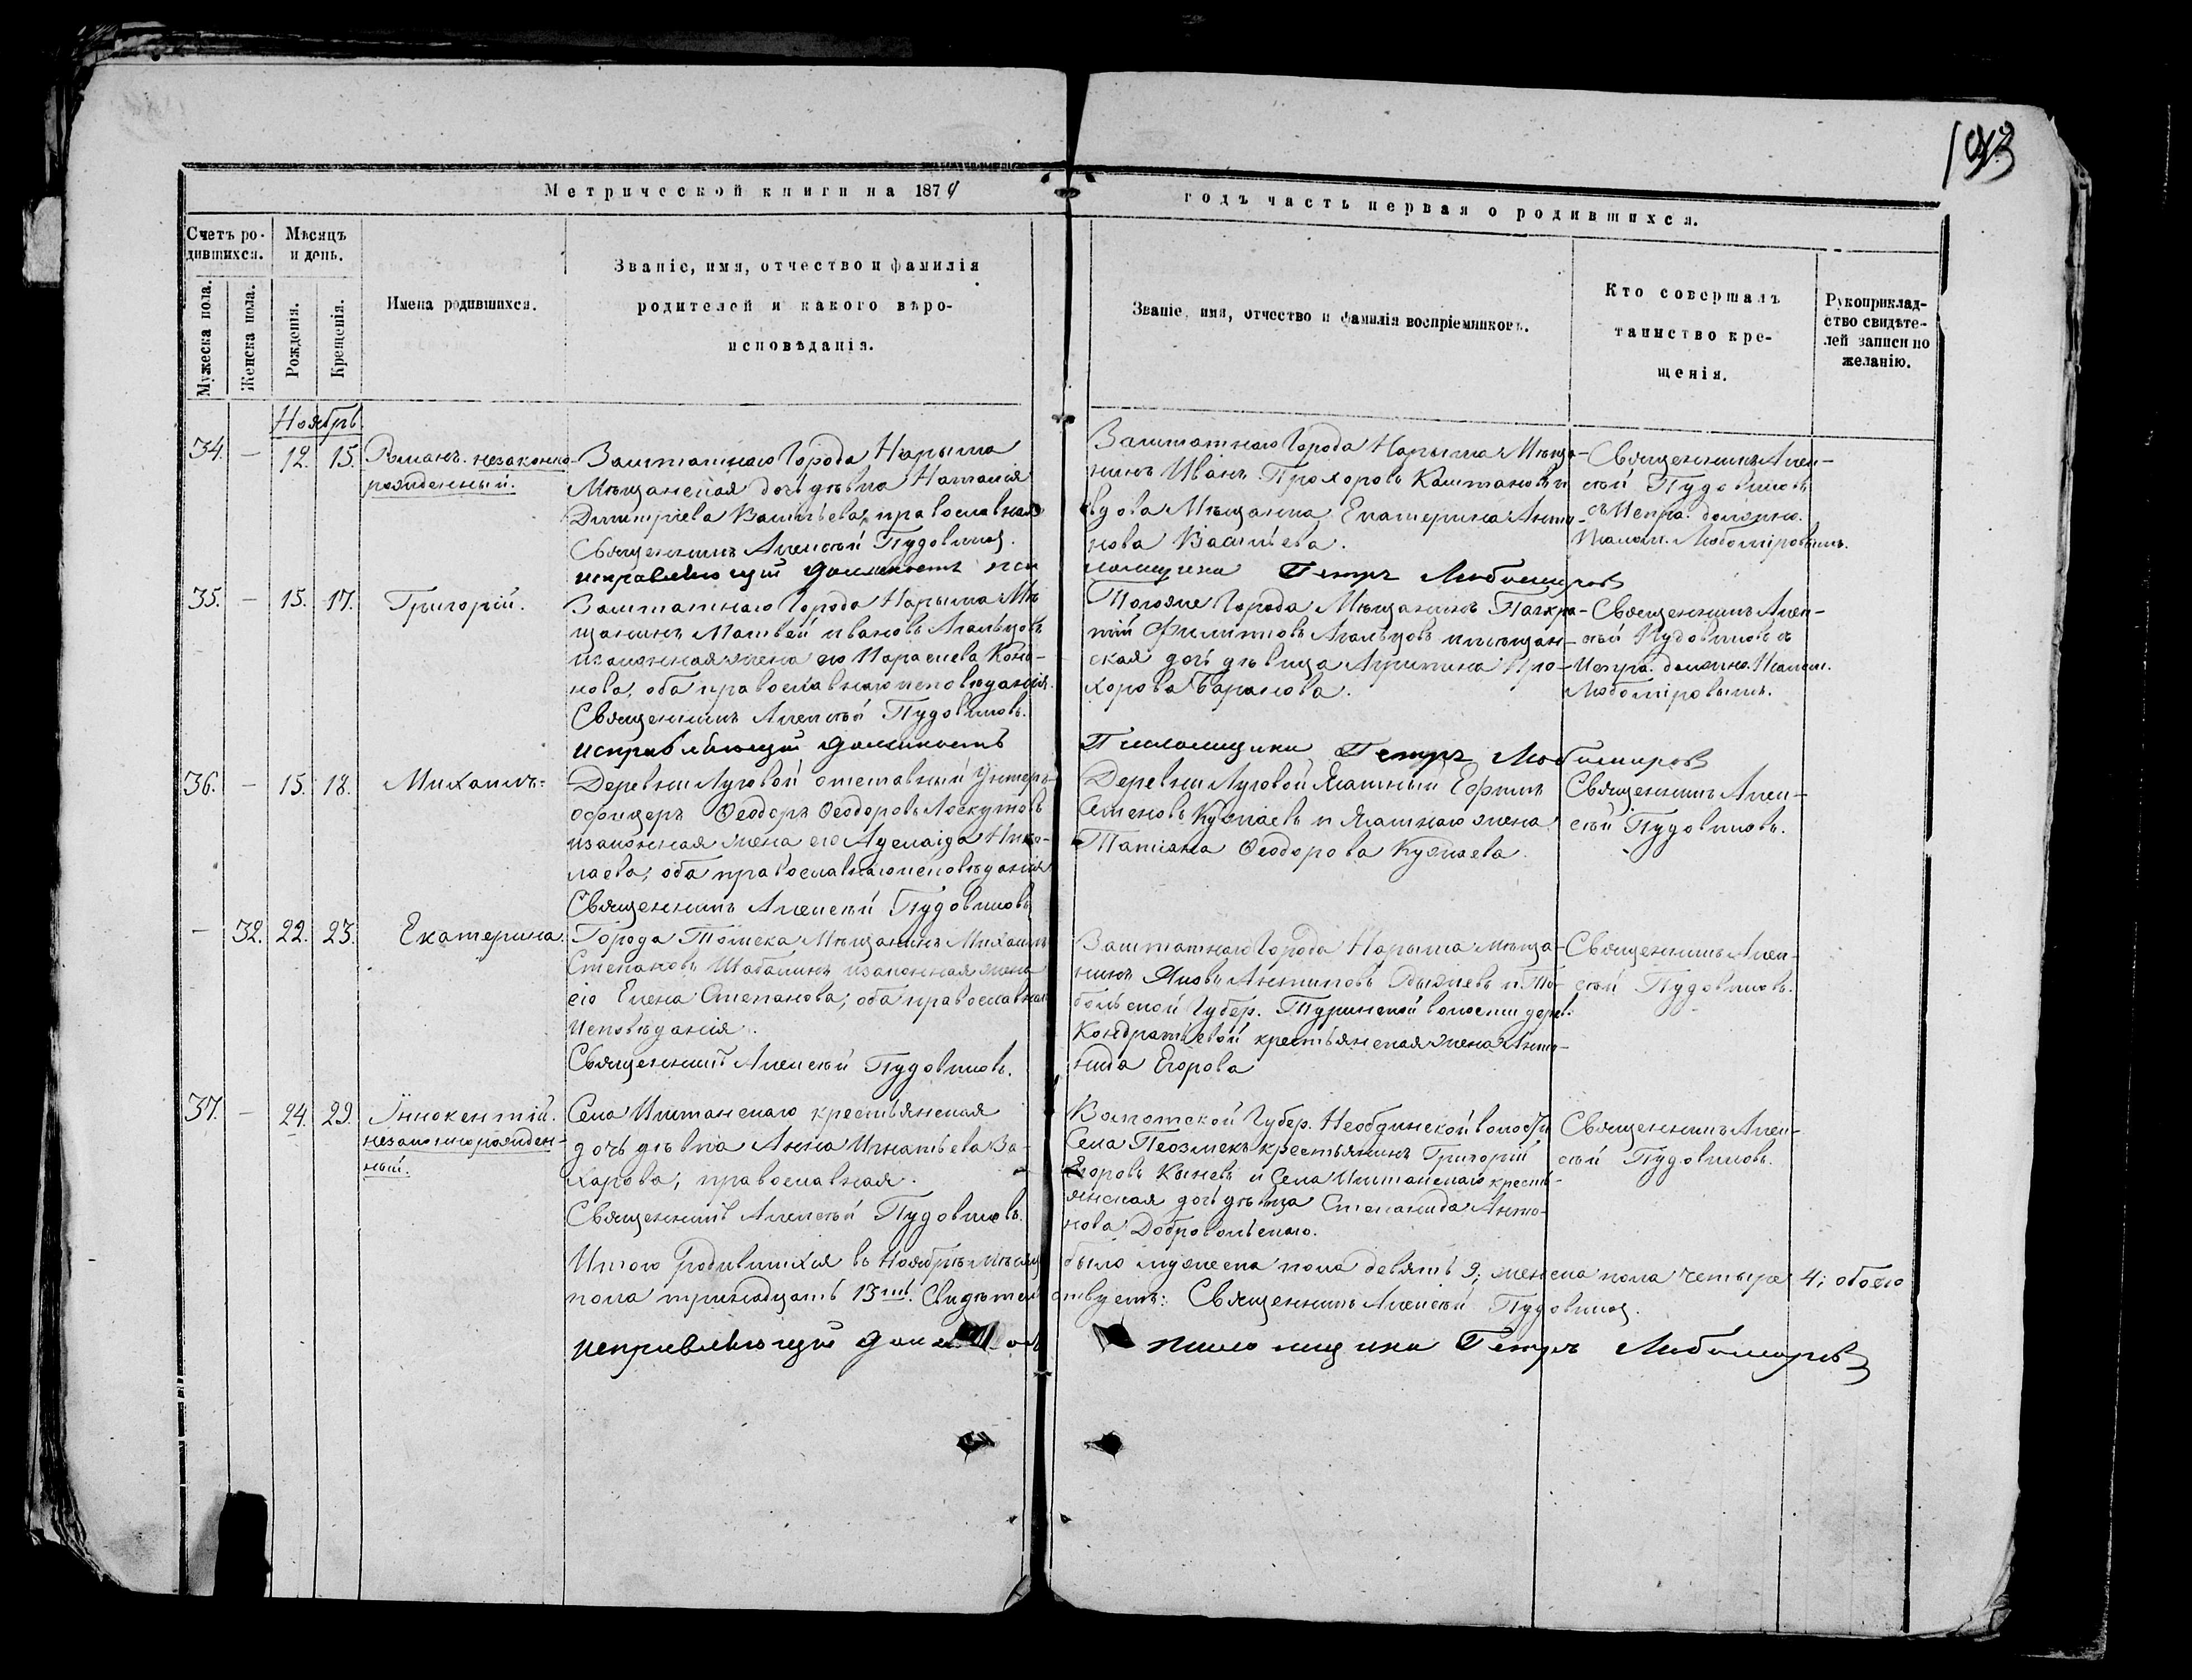 193
Метрической книги на 1879
годъ часть первая о родившихся.
Счетъ ро-
дившихся.
Мужеска пола.
Женска пола.
Мѣсяцъ
и день.
Рожденія.
Крещенія.
Имена родившихся.
Званіе, имя, отчество и фамилія
родителей и какого вѣро-
исповѣданія.
Званіе, имя, отчество и фамилія воспріемниковъ.
Кто совершалъ
таинство кре-
щенія.
Рукоприклад-
ство свидѣте-
лей записи по
желанію.
Ноябрь.
34. — 12. 15. Романъ. незаконно-
рожденный.
Заштатнаго Города Нарыма
Мѣщанская дочь дѣвка Наталія
Димитріева Васильева, православная
Священникъ Алексѣй Пудовиковъ.
Заштатнаго Города Нарыма Мѣща-
нинъ Иванъ Прохоровъ Каштановъ и
вдова Мѣщанка Екатерина Анти-
пова Васильева.
Священникъ Алек-
сѣй Пудовиковъ
съ Испра. должно.
Псалом. Любомировымъ.
исправляющій должность пса
ломщика Петръ Любомировъ
35. — 15. 17. Григорій.
Заштатнаго Города Нарыма Мѣ
щанинъ Матвѣй Ивановъ Агальцовъ
и законная жена его Параскева Коно-
нова, оба православнаго исповѣданія.
Священникъ Алексѣй Пудовиковъ.
Тогоже Города Мѣщанинъ Панкра-
тій Филиповъ Агальцовъ и мѣщан-
ская дочь дѣвица Агрипина Про-
хорова Баранова.
Священникъ Алек-
сѣй Пудовиковъ съ
Испра. должно. Псалом.
Любомировымъ.
исправляющій должность
Псаломщика Петръ Любомировъ
36. — 15. 18. Михаилъ.
Деревни Луговой отставный Унтеръ-
офицеръ Ѳеодоръ Ѳеодоровъ Лоскутовъ
и законная жена его Аделаида Нико-
лаева, оба православнаго исповѣданія
Священникъ Алексѣй Пудовиковъ
Деревни Луговой Ясашный Ефимъ
Семеновъ и Ясашнаго жена
Татіана Ѳеодорова
Священникъ Алек-
сѣй Пудовиковъ.
— 32. 22. 23. Екатерина.
Города Томска Мѣщанинъ Михаилъ
Степановъ Шабалинъ и законная жена
его Елена Степанова, оба православнаго
исповѣданія.
Священникъ Алексѣй Пудовиковъ.
Заштатнаго Города Нарыма мѣща-
нинъ Яковъ Антиповъ и То-
больской Губер. Туринской волости дерев.
Кондратьевой крестьянская жена Анто-
нида Егорова
Священникъ Алек-
сѣй Пудовиковъ.
37. — 24. 29. Иннокентій.
незаконнорожден-
ный.
Села Иштанскаго крестьянская
дочь дѣвка Анна Игнатьева За-
харова, православная.
Священникъ Алексѣй Пудовиковъ.
Вологской Губер. Необдинской волости
Села Пезмекъ крестьянинъ Григорій
Егоровъ и Села Иштанскаго кресть-
янская дочь дѣвица Степанида Анто-
нова Добровольскаго.
Священникъ Алек-
сѣй Пудовиковъ.
Итого Родившихся въ Ноябрѣ мѣсяцѣ было мужеска пола девять 9; женска пола четыре 4; обоего
пола тринадцать 13ть. Свидѣтельствуетъ: Священникъ Алексѣй Пудовиковъ.
исправляющій должность псаломщика Петръ Любомировъ